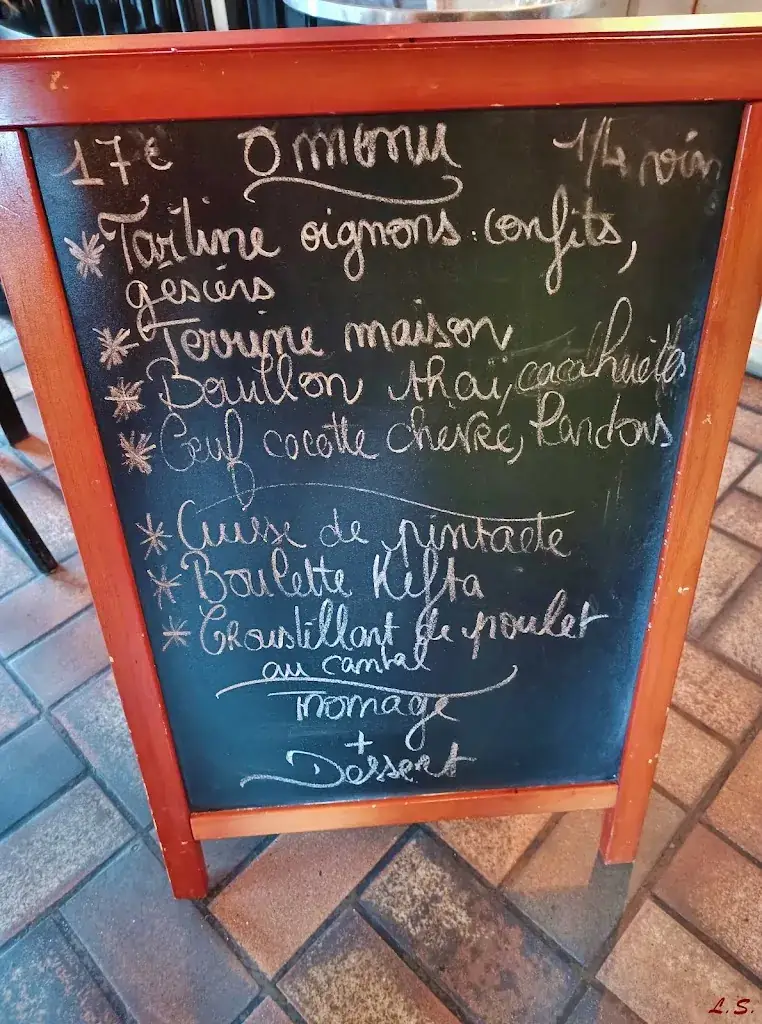 17€ O menu 1/4 vin
* Tartine oignons confits,
gésiers
* Terrine maison
* Bouillon thaï, cacahuètes
* Oeuf cocotte chèvre, lardons
* Cuisse de pintade
* Boulette Kefta
* Croustillant de poulet
au cantal
Fromage
+
Dessert
L.S.